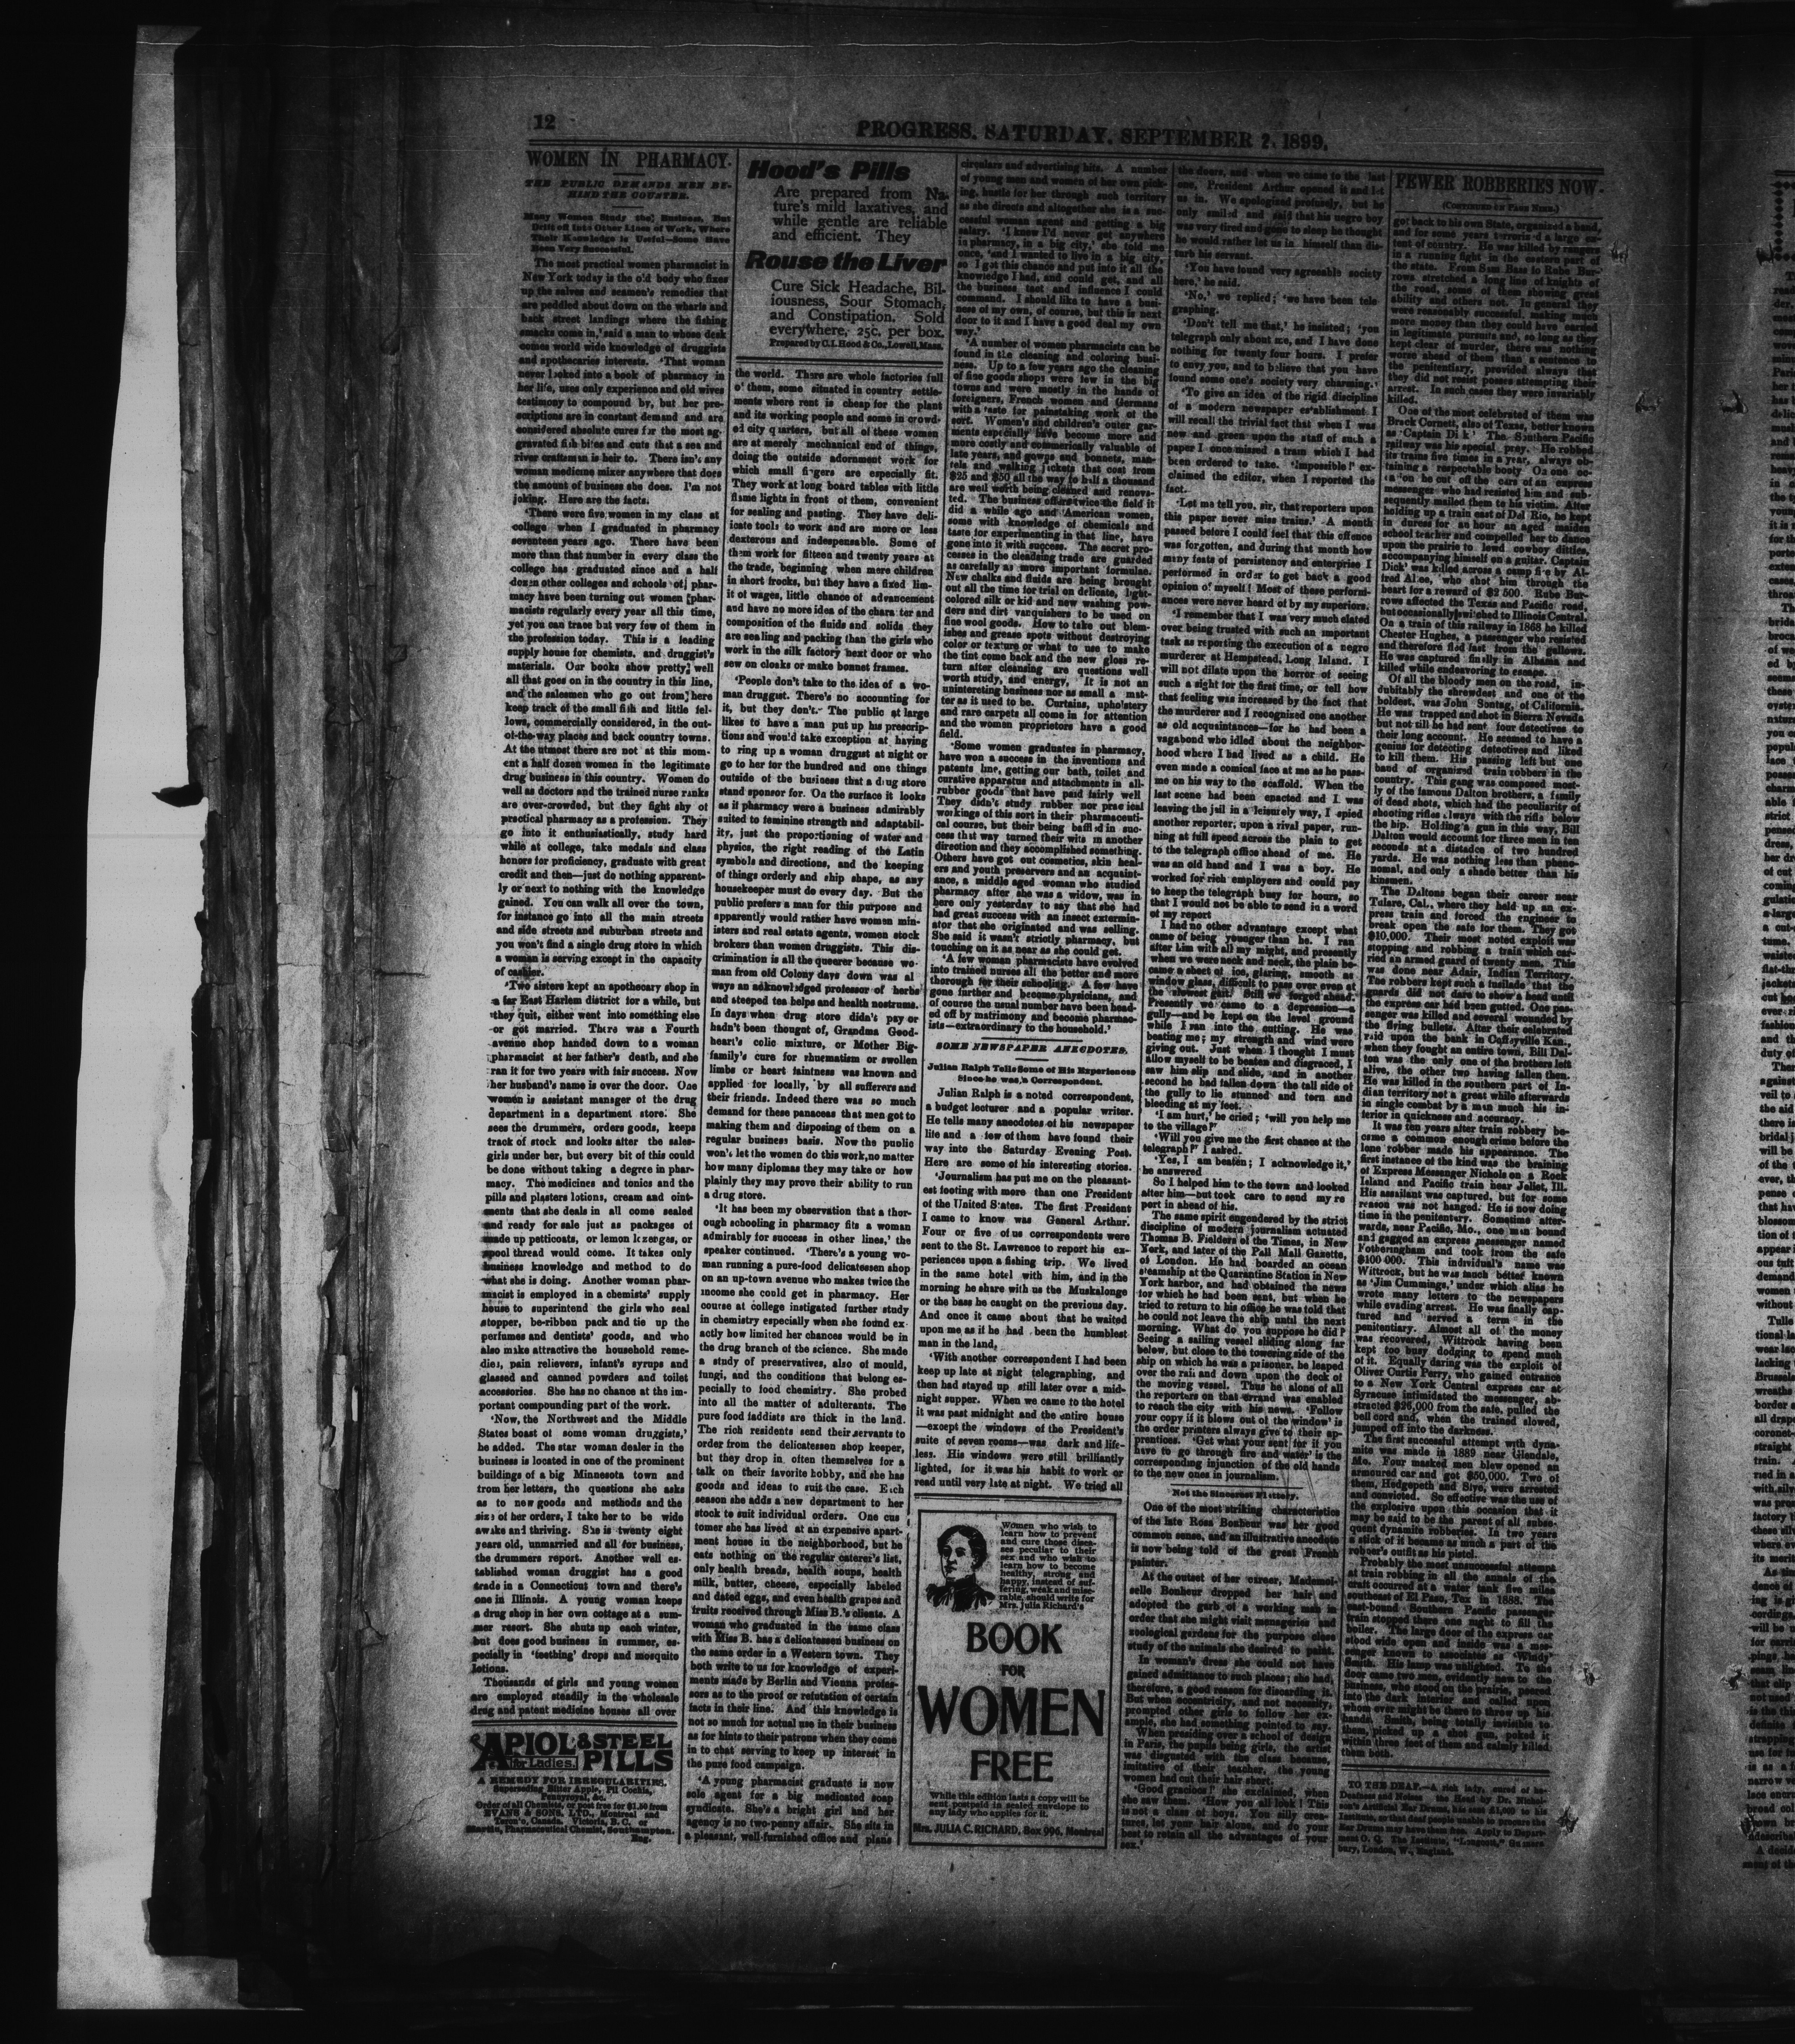 12
PROGRESS, SATURDAY, SEPTEMBER 2, 1899.
WOMEN IN PHARMACY.
THE PUBLIC DEMANDS MEN BE-
HIND THE COUNTER.
Many Women Study the Business, But
Drift off Into Other Lines of Work, Where
Their Knowledge is Useful—Some Have
Been Very Successful.
The most practical women pharmacist in
New York today is the old body who fixes
up the salves and seamen's remedies that
are peddled about down on the wharfs and
back street landings where the fishing
smacks come in,' said a man to whose desk
comes world wide knowledge of druggists
and apothecaries interests. 'That woman
never looked into a book of pharmacy in
her life, uses only experience and old wives
testimony to compound by, but her pre-
scriptions are in constant demand and are
considered absolute cures for the most ag-
gravated fish bites and cuts that a sea and
river craftsman is heir to. There isn't any
woman medicine mixer anywhere that does
the amount of business she does. I'm not
joking. Here are the facts.
'There were five women in my class at
college when I graduated in pharmacy
seventeen years ago. There have been
more than that number in every class the
college has graduated since and a half
dozen other colleges and schools of phar-
macy have been turning out women phar-
macists regularly every year all this time,
yet you can trace but very few of them in
the profession today. This is a leading
supply house for chemists, and druggist's
materials. Our books show pretty well
all that goes on in the country in this line,
and the salesmen who go out from here
keep track of the small fish and little fel-
lows, commercially considered, in the out-
of-the-way places and back country towns.
At the utmost there are not at this mom-
ent a half dozen women in the legitimate
drug business in this country. Women do
well as doctors and the trained nurse ranks
are over-crowded, but they fight shy of
practical pharmacy as a profession. They
go into it enthusiastically, study hard
while at college, take medals and class
honors for proficiency, graduate with great
credit and then—just do nothing apparent-
ly or next to nothing with the knowledge
gained. You can walk all over the town,
for instance go into all the main streets
and side streets and suburban streets and
you won't find a single drug store in which
a woman is serving except in the capacity
of cashier.
'Two sisters kept an apothecary shop in
a far East Harlem district for a while, but
they quit, either went into something else
or got married. There was a Fourth
avenue shop handed down to a woman
pharmacist at her father's death, and she
ran it for two years with fair success. Now
her husband's name is over the door. One
women is assistant manager of the drug
department in a department store. She
sees the drummers, orders goods, keeps
track of stock and looks after the sales-
girls under her, but every bit of this could
be done without taking a degree in phar-
macy. The medicines and tonics and the
pills and plasters lotions, cream and oint-
ments that she deals in all come sealed
and ready for sale just as packages of
made up petticoats, or lemon lozenges, or
spool thread would come. It takes only
business knowledge and method to do
what she is doing. Another woman phar-
macist is employed in a chemists' supply
house to superintend the girls who seal
stopper, be-ribbon pack and tie up the
perfumes and dentists' goods, and who
also make attractive the household reme-
dies, pain relievers, infant's syrups and
glassed and canned powders and toilet
accessories. She has no chance at the im-
portant compounding part of the work.
'Now, the Northwest and the Middle
States boast of some woman druggists,'
he added. The star woman dealer in the
business is located in one of the prominent
buildings of a big Minnesota town and
from her letters, the questions she asks
as to new goods and methods and the
size of her orders, I take her to be wide
awake and thriving. She is twenty eight
years old, unmarried and all for business,
the drummers report. Another well es-
tablished woman druggist has a good
trade in a Connecticut town and there's
one in Illinois. A young woman keeps
a drug shop in her own cottage at a sum-
mer resort. She shuts up each winter,
but does good business in summer, es-
pecially in 'teething' drops and mosquito
lotions.
Thousands of girls and young women
are employed steadily in the wholesale
drug and patent medicine houses all over
APIOL & STEEL
for Ladies. PILLS
A REMEDY FOR IRREGULARITIES.
Superseding Bitter Apple, Pil Cochia,
Pennyroyal, &c.
Order of all Chemists, or post free for $1.50 from
EVANS & SONS, LTD., Montreal and
Toronto, Canada. Victoria, B. C. or
Martin, Pharmaceutical Chemist, Southampton.
Eng.
Hood's Pills
Are prepared from Na-
ture's mild laxatives, and
while gentle are reliable
and efficient. They
Rouse the Liver
Cure Sick Headache, Bil-
iousness, Sour Stomach,
and Constipation. Sold
everywhere, 25c. per box.
Prepared by C.I. Hood & Co., Lowell, Mass.
the world. There are whole factories full
of them, some situated in country settle-
ments where rent is cheap for the plant
and its working people and some in crowd-
ed city quarters, but all of these women
are at merely mechanical end of things,
doing the outside adornment work for
which small fingers are especially fit.
They work at long board tables with little
flame lights in front of them, convenient
for sealing and pasting. They have deli-
icate tools to work and are more or less
dexterous and indespensable. Some of
them work for fifteen and twenty years at
the trade, beginning when mere children
in short frocks, but they have a fixed lim-
it of wages, little chance of advancement
and have no more idea of the character and
composition of the fluids and solids they
are sealing and packing than the girls who
work in the silk factory next door or who
sew on cloaks or make bonnet frames.
'People don't take to the idea of a wo-
man druggist. There's no accounting for
it, but they don't. The public at large
likes to have a man put up his prescrip-
tions and would take exception at having
to ring up a woman druggist at night or
go to her for the hundred and one things
outside of the business that a drug store
stand sponsor for. On the surface it looks
as if pharmacy were a business admirably
suited to feminine strength and adaptabil-
ity, just the proportioning of water and
physics, the right reading of the Latin
symbols and directions, and the keeping
of things orderly and ship shape, as any
housekeeper must do every day. But the
public prefers a man for this purpose and
apparently would rather have women min-
isters and real estate agents, women stock
brokers than women druggists. This dis-
crimination is all the queerer because wo-
man from old Colony days down was al
ways an acknowledged professor of herbs
and steeped tea helps and health nostrums.
In days when drug store didn't pay or
hadn't been thought of, Grandma Good-
heart's colic mixture, or Mother Big-
family's cure for rhuematism or swollen
limbs or heart faintness was known and
applied for locally, by all sufferers and
their friends. Indeed there was so much
demand for these panaceas that men got to
making them and disposing of them on a
regular business basis. Now the public
won't let the women do this work, no matter
how many diplomas they may take or how
plainly they may prove their ability to run
a drug store.
'It has been my observation that a thor-
ough schooling in pharmacy fits a woman
admirably for success in other lines,' the
speaker continued. 'There's a young wo-
man running a pure-food delicatessen shop
on an up-town avenue who makes twice the
income she could get in pharmacy. Her
course at college instigated further study
in chemistry especially when she found ex
actly how limited her chances would be in
the drug branch of the science. She made
a study of preservatives, also of mould,
fungi, and the conditions that belong es-
pecially to food chemistry. She probed
into all the matter of adulterants. The
pure food faddists are thick in the land.
The rich residents send their servants to
order from the delicatessen shop keeper,
but they drop in often themselves for a
talk on their favorite hobby, and she has
goods and ideas to suit the case. Each
season she adds a new department to her
stock to suit individual orders. One cus
tomer she has lived at an expensive apart-
ment house in the neighborhood, but he
eats nothing on the regular caterer's list,
only health breads, health soups, health
milk, butter, cheese, especially labeled
and dated eggs, and even health grapes and
fruits received through Miss B.'s clients. A
woman who graduated in the same class
with Miss B. has a delicatessen business on
the same order in a Western town. They
both write to us for knowledge of experi-
ments made by Berlin and Vienna profes-
sors as to the proof or refutation of certain
facts in their line. And this knowledge is
not so much for actual use in their business
as for hints to their patrons when they come
in to chat serving to keep up interest in
the pure food campaign.
'A young pharmacist graduate is now
sole agent for a big medicated soap
syndicate. She's a bright girl and her
agency is no two-penny affair. She sits in
a pleasant, well-furnished office and plans
circulars and advertising hits. A number
of young men and women of her own pick-
ing, hustle for her through such territory
as she directs and altogether she is a suc-
cessful woman agent and getting a big
salary. 'I know I'd never get anywhere
in pharmacy, in a big city,' she told me
once, 'and I wanted to live in a big city,
so I got this chance and put into it all the
knowledge I had, and could get, and all
the business tact and influence I could
command. I should like to have a busi-
ness of my own, of course, but this is next
door to it and I have a good deal my own
way.'
'A number of women pharmacists can be
found in the cleaning and coloring busi-
ness. Up to a few years ago the cleaning
of fine goods shops were few in the big
towns and were mostly in the hands of
foreigners, French women and Germans
with a taste for painstaking work of the
sort. Women's and children's outer gar-
ments especially have become more and
more costly and commercially valuable of
late years, and gowns and bonnets, man-
tels and walking jackets that cost from
$25 and $50 all the way to half a thousand
are well worth being cleaned and renova-
ted. The business offers twice the field it
did a while ago and American women,
some with knowledge of chemicals and
taste for experimenting in that line, have
gone into it with success. The secret pro-
cesses in the cleadsing trade are guarded
as carefully as more important formulae.
New chalks and fluids are being brought
out all the time for trial on delicate, light-
colored silk or kid and new washing pow-
ders and dirt vanquishers to be used on
fine wool goods. How to take out blem-
ishes and grease spots without destroying
color or texture or what to use to make
the tint come back and the new gloss re-
turn after cleansing are questions well
worth study, and energy, It is not an
uninteresting business nor as small a mat-
ter as it used to be. Curtains, upholstery
and rare carpets all come in for attention
and the women proprietors have a good
field.
'Some women graduates in pharmacy,
have won a success in the inventions and
patents line, getting our bath, toilet and
curative apparatus and attachments in all-
rubber goods that have paid fairly well
They didn't study rubber nor practical
workings of this sort in their pharmaceuti-
cal course, but their being baffled in suc-
cess that way turned their wits in another
direction and they accomplished something.
Others have got out cosmetics, skin heal-
ers and youth preservers and an acquaint-
ance, a middle aged woman who studied
pharmacy after she was a widow, was in
here only yesterday to say that she had
had great success with an insect extermin-
ator that she originated and was selling.
She said it wasn't strictly pharmacy, but
touching on it as near as she could get.
'A few women pharmacists have evolved
into trained nurses all the better and more
thorough for their schooling. A few have
gone further and become physicians, and
of course the usual number have been head-
ed off by matrimony and become pharmac-
ists—extraordinary to the household.'
SOME NEWSPAPER ANECDOTES.
Julian Ralph Tells Some of His Experiences
Since he was a Correspondent.
Julian Ralph is a noted correspondent,
a budget lecturer and a popular writer.
He tells many anecdotes of his newspaper
life and a few of them have found their
way into the Saturday Evening Post.
Here are some of his interesting stories.
'Journalism has put me on the pleasant-
est footing with more than one President
of the United States. The first President
I came to know was General Arthur.
Four or five of us correspondents were
sent to the St. Lawrence to report his ex-
periences upon a fishing trip. We lived
in the same hotel with him, and in the
morning he share with us the Muskalonge
or the bass he caught on the previous day.
And once it came about that he waited
upon me as if he had been the humblest
man in the land,
'With another correspondent I had been
keep up late at night telegraphing, and
then had stayed up still later over a mid-
night supper. When we came to the hotel
it was past midnight and the entire house
—except the windows of the President's
suite of seven rooms—was dark and life-
less. His windows were still brilliantly
lighted, for it was his habit to work or
read until very late at night. We tried all
Women who wish to
learn how to prevent
and cure those disea-
ses peculiar to their
sex and who wish to
learn how to become
healthy, strong and
happy, instead of suf-
fering, weak and mise-
rable, should write for
Mrs. Julia Richard's
BOOK
FOR
WOMEN
FREE
While this edition lasts a copy will be
sent postpaid in sealed envelope to
any lady who applies for it.
Mrs. JULIA C. RICHARD, Box 996, Montreal
the doors, and when we came to the last
one, President Arthur opened it and let
us in. We apologised profusely, but he
only smiled and said that his negro boy
was very tired and gone to sleep he thought
he would rather let us in himself than dis-
turb his servant.
'You have found very agreeable society
here,' he said.
'No,' we replied; 'we have been tele-
graphing.
'Don't tell me that,' he insisted; 'you
telegraph only about me, and I have done
nothing for twenty four hours. I prefer
to envy you, and to believe that you have
found some one's society very charming.'
'To give an idea of the rigid discipline
of a modern newspaper establishment I
will recall the trivial fact that when I was
new and green upon the staff of such a
paper I once missed a tram which I had
been ordered to take. 'Impossible!' ex-
claimed the editor, when I reported the
fact.
'Let me tell you, sir, that reporters upon
this paper never miss trains.' A month
passed before I could feel that this offence
was forgotten, and during that month how
many feats of persistency and enterprise I
performed in order to get back a good
opinion of myself! Most of these perform-
ances were never heard of by my superiors.
'I remember that I was very much elated
over being trusted with such an important
task as reporting the execution of a negro
murderer at Hempstead, Long Island. I
will not dilate upon the horror of seeing
such a sight for the first time, or tell how
that feeling was increased by the fact that
the murderer and I recognized one another
as old acquaintances—for he had been a
vagabond who idled about the neighbor-
hood where I had lived as a child. He
even made a comical face at me as he pass-
me on his way to the scaffold. When the
last scene had been enacted and I was
leaving the jail in a leisurely way, I spied
another reporter, upon a rival paper, run-
ning at full speed across the plain to get
to the telegraph office ahead of me. He
was an old hand and I was a boy. He
worked for rich employers and could pay
to keep the telegraph busy for hours, so
that I would not be able to send in a word
of my report
I had no other advantage except what
came of being younger than he. I ran
after him with all my might, and presently
when we were neck and neck, the plain be-
came a sheet of ice, glaring, smooth as
window glass, difficult to pass over even at
the slowest gait. Still we forged ahead.
Presently we came to a depression—a
gully—and he kept on the level ground
while I ran into the cutting. He was
beating me; my strength and wind were
giving out. Just when I thought I must
allow myself to be beaten and disgraced, I
saw him slip and slide, and in another
second he had fallen down the tall side of
the gully to lie stunned and torn and
bleeding at my feet.
'I am hurt,' he cried; 'will you help me
to the village?'
'Will you give me the first chance at the
telegraph?' I asked.
'Yes, I am beaten; I acknowledge it,'
he answered
So I helped him to the town and looked
after him—but took care to send my re
port in ahead of his.
The same spirit engendered by the strict
discipline of modern journalism actuated
Thomas B. Fielders of the Times, in New
York, and later of the Pall Mall Gazette,
of London. He had boarded an ocean
steamship at the Quarantine Station in New
York harbor, and had obtained the news
for which he had been sent, but when he
tried to return to his office he was told that
he could not leave the ship until the next
morning. What do you suppose he did?
Seeing a sailing vessel sliding along far
below, but close to the towering side of the
ship on which he was a prisoner, he leaped
over the rail and down upon the deck of
the moving vessel. Thus he alone of all
the reporters on that errand was enabled
to reach the city with his news. 'Follow
your copy if it blows out of the window' is
the order printers always give to their ap-
prentices. 'Get what your sent for if you
have to go through fire and water' is the
corresponding injunction of the old hands
to the new ones in journalism.
Not the Sincerest Flattery.
One of the most striking characteristics
of the late Rosa Bonheur was her good
common sense, and an illustrative anecdote
is now being told of the great French
painter.
At the outset of her career, Mademoi-
selle Bonheur dropped her hair and
adopted the garb of a working man in
order that she might visit menageries and
zoological gardens for the purpose close
study of the animals she desired to paint.
In woman's dress she could not have
gained admittance to such places; she had,
therefore, a good reason for discarding it.
But when eccentricity, and not necessity,
prompted other girls to follow her ex-
ample, she had something pointed to say.
When presiding over a school of design
in Paris, the pupils being girls, the artist
was disgusted with the class because,
imitative of their teacher, the young
women had cut their hair short.
'Good gracious!' she exclaimed, when
she saw them. 'How you all look! This
is not a class of boys. You silly crea-
tures, let your hair alone, and do your
best to retain all the advantages of your
sex.'
FEWER ROBBERIES NOW.
(CONTINUED ON PAGE NINE.)
got back to his own State, organized a band,
and for some years terrorized a large ex-
tent of country. He was killed by rangers
in a running fight in the eastern part of
the state. From Sam Bass to Rube Bur-
rows stretched a long line of knights of
the road, some of them showing great
ability and others not. In general they
were reasonably successful, making much
more money than they could have earned
in legitimate pursuits and, so long as they
kept clear of murder, there was nothing
worse ahead of them than a sentence to
the penitentiary, provided always that
they did not resist posses attempting their
arrest. In such cases they were invariably
killed.
One of the most celebrated of them was
Brack Cornett, also of Texas, better known
as 'Captain Dick' The Southern Pacific
railway was his special prey. He robbed
its trains five times in a year, always ob-
taining a respectable booty On one oc-
casion he cut off the ears of an express
messenger who had resisted him and sub-
sequently mailed them to his victim. After
holding up a train east of Del Rio, he kept
in duress for an hour an aged maiden
school teacher and compelled her to dance
upon the prairie to lewd cowboy ditties,
accompanying himself on a guitar. Captain
Dick' was killed across a camp fire by Al-
fred Allee, who shot him through the
heart for a reward of $2 500. Rube Bur-
rows affected the Texas and Pacific road,
but occasionally switched to Illinois Central.
On a train of this railway in 1868 he killed
Chester Hughes, a passenger who resisted
and therefore fled fast from the gallows.
He was captured finally in Albama and
killed while endeavoring to escape.
Of all the bloody men on the road, in-
dubitably the shrewdest and one of the
boldest, was John Sontag, of California.
He was trapped and shot in Sierra Nevada
but not till he had sent four detectives to
their long account. He seemed to have a
genius for detecting detectives and liked
to kill them. His passing left but one
band of organized train robbers in the
country. This gang was composed most-
ly of the famous Dalton brothers, a family
of dead shots, which had the peculiarity of
shooting rifles always with the rifle below
the hip. Holding a gun in this way, Bill
Dalton would account for three men in ten
seconds at a distadce of two hundred
yards. He was nothing less than pheno-
nomal, and only a shade better than his
kinsmen.
The Daltons began their career near
Tulare, Cal., where they held up an ex-
press train and forced the engineer to
break open the safe for them. They got
$10,000. Their most noted exploit was
stopping and robbing a train which car-
ried an armed guard of twenty men. This
was done near Adair, Indian Territory.
The robbers kept such a fusilade that the
guards did not dare to show a head until
the express car had been gutted. One pas-
senger was killed and several wounded by
the flying bullets. After their celebrated
raid upon the bank in Coffeyville Kan.,
when they fought an entire town, Bill Dal-
ton was the only one of the brothers left
alive, the other two having fallen then.
He was killed in the southern part of In-
dian territory not a great while afterwards
in single combat by a man much his in-
ferior in quickness and accuracy.
It was ten years after train robbery be-
came a common enough crime before the
lone robber made his appearance. The
first instance of the kind was the braining
of Express Messenger Nichols on a Rock
Island and Pacific train near Joliet, Ill.
His assailant was captured, but for some
reason was not hanged. He is now doing
time in the penitentary. Sometime after-
wards, near Pacific, Mo., one man bound
and gagged an express messenger named
Fotheringham and took from the safe
$100 000. This individual's name was
Wittrock, but he was much better known
as 'Jim Cummings,' under which alias he
wrote many letters to the newspapers
while evading arrest. He was finally cap-
tured and served a term in the
penitentiary. Almost all of the money
was recovered, Wittrock having been
kept too busy dodging to spend much
of it. Equally daring was the exploit of
Oliver Curtis Perry, who gained entrance
to a New York Central express car at
Syracuse intimidated the messenger, ab-
stracted $26,000 from the safe, pulled the
bell cord and, when the trained slowed,
jumped off into the darkness.
The first successful attempt with dyna-
mite was made in 1889 near Glendale,
Mo. Four masked men blew opened an
armoured car and got $50,000. Two of
them, Hedgepeth and Slye, were arrested
and convicted. So effective was the use of
the explosive upon this occasion that it
may be said to be the parent of all subse-
quent dynamite robberies. In two years
a stick of it became as much a part of the
robber's outfit as his pistol.
Probably the most unsuccessful attempt
at train robbing in all the annals of the
craft occurred at a water tank five miles
southeast of El Paso, Tex in 1888. The
east-bound Southern Pacific passenger
train stopped there one night to fill the
boiler. The large door of the express car
stood wide open and inside was a mes-
senger known to associates as 'Windy'
Smith. His lamp was unlighted. To the
door came two men, evidently new to the
business, who stood on the prairie, peered
into the dark interior and called upon
whom ever might be there to throw up his
hands. Smith, being totally invisible to
them, picked up a shot gun, poked it
within three feet of them and calmly killed
them both.
TO THE DEAF.—A rich lady, cured of her
Deafness and Noises in the Head by Dr. Nichol-
son's Artificial Ear Drums, has sent £1,000 to his
Institute, so that deaf people unable to procure the
Ear Drums may have them free. Apply to Depart-
ment O. Q. The Institute, "Longcott," Gunners-
bury, London, W., England.